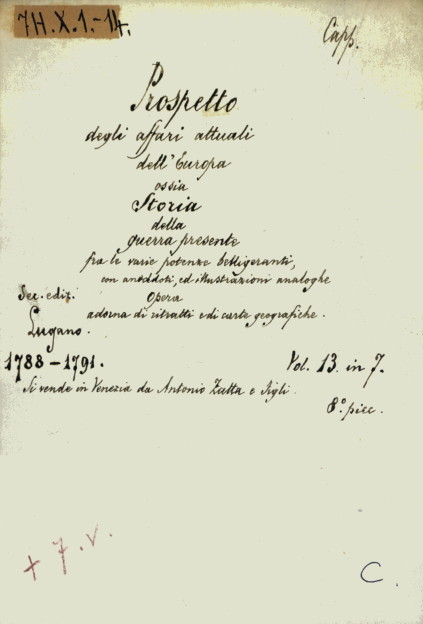 7H.X.1.-14.
Capp.
Prospetto
degli affari attuali
dell'Europa
ossia
Storia
della
guerra presente
fra le varie potenze belligeranti,
con aneddoti, ed illustrazioni analoghe
Opera
adorna di ritratti e di carte geografiche.
Sec. ediz.
Lugano.
1788-1791. Vol. 13 in 7.
Si vende in Venezia da Antonio Zatta e Figli.
8.° picc.
+ 7. v.
C.